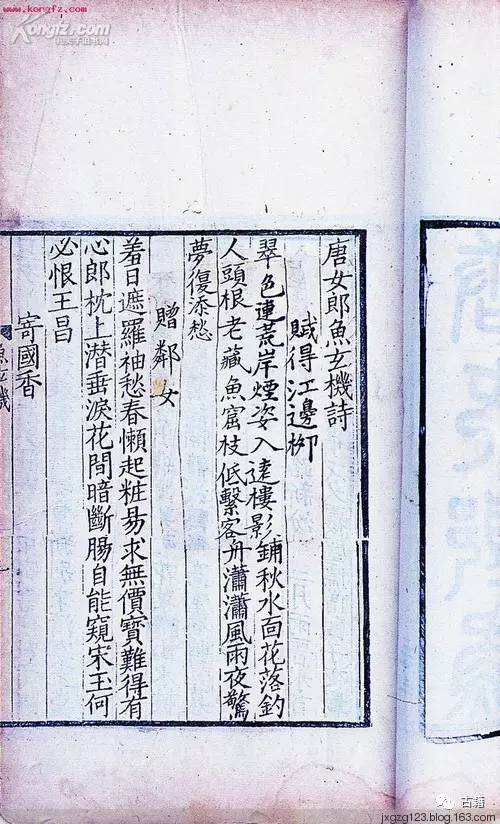 www.kongfz.com
Kongfz.com
孔夫子旧书网
唐女郎魚玄機詩
賦得江邊柳
翠色連荒岸煙姿入遠樓影鋪秋水面花落釣
人頭根老藏魚窟枝低繫客舟瀟瀟風雨夜驚
夢復添愁
贈鄰女
羞日遮羅袖愁春懶起粧易求無價寶難得有
心郎枕上潜垂淚花間暗斷腸自能窺宋玉何
必恨王昌
寄國香
魚玄機
古籍
jxgzg123.blog.163.com